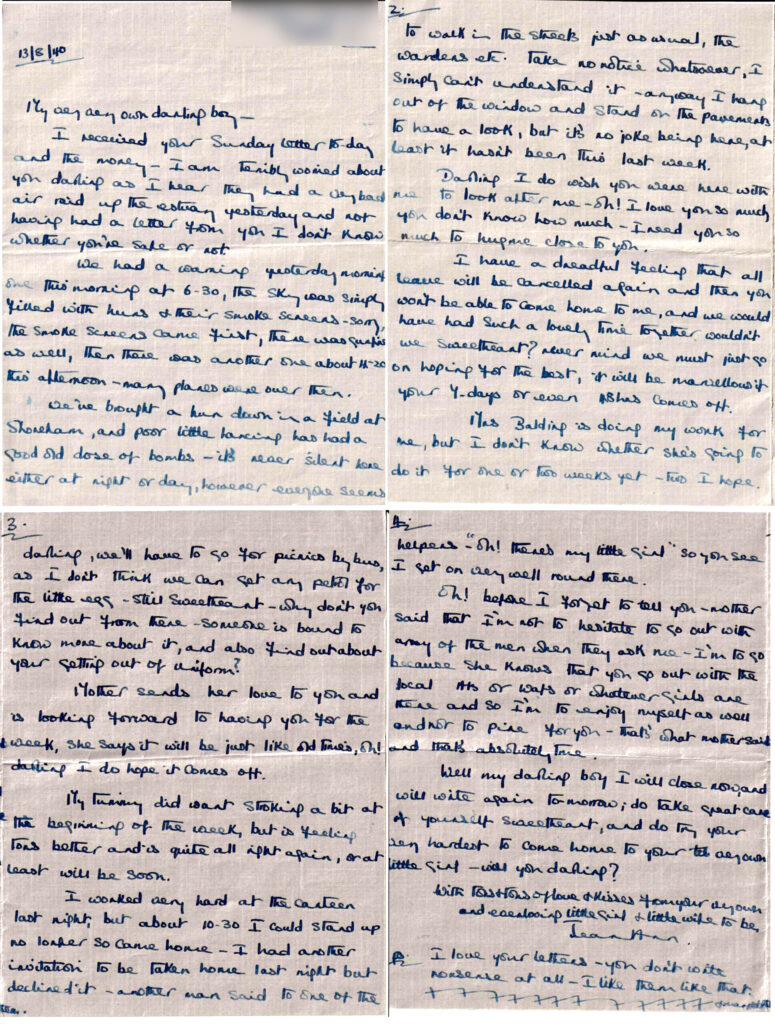 13/8/40
My very very own darling boy—
I received your Sunday letter to-day
and the money — I am terribly worried about
you darling as I hear they had a very bad
air raid up the estuary yesterday and not
having had a letter from you I don't know
whether you're safe or not
We had a warning yesterday morning
one this morning at 6-30, the sky was simply
filled with huns & their smoke screens - sorry,
the smoke screens came first, there was gunfire
as well, then there was another one about 4-20
this afternoon - many planes were over then.
We've brought a hun down in a field at
Shoreham, and poor little Lancing has had a
good old dose of bombs - it's never silent here
either at night or day, however everyone seems
2.
to walk in the streets just as usual, the
wardens etc. take no notice whatsoever, I
simply can't understand it - anyway I hang
out of the window and stand on the pavements
to have a look, but it's no joke being here, at
least it hasn't been this last week.
Darling I do wish you were here with
me to look after me - oh! I love you so much
you don't know how much - I need you so
much to hug me close to you.
I have a dreadful feeling that all
leave will be cancelled again and then you
won't be able to come home to me, and we would
have had such a lovely time together wouldn't
we sweetheart? never mind we must just go
on hoping for the best, it will be marvellous if
your 7-days or even 48hrs comes off.
Mrs Balding is doing my work for
me, but I don't know whether she's going to
do it for one or two weeks yet - two I hope.
3.
darling, we'll have to go for picnics by bus,
as I don't think we can get any petrol for
the little egg - still sweetheart - why don't you
find out from there - someone is bound to
know more about it, and also find out about
your getting out of uniform?
Mother sends her love to you and
is looking forward to having you for the
week, she says it will be just like old times, oh!
darling I do hope it comes off.
My tummy did want stroking a bit at
the beginning of the week, but is feeling
tons better and is quite all right again, or at
least will be soon.
I worked very hard at the canteen
last night, but about 10-30 I could stand up
no longer so came home - I had another
invitation to be taken home last night but
declined it - another man said to one of the
4.
helpers - "oh! there's my little girl" so you see
I get on very well round there.
Oh! before I forget to tell you - mother
said that I'm not to hesitate to go out with
any of the men when they ask me - I'm to go
because she knows that you go out with the
local Ats or Wafs or whatever girls are
there and so I'm to enjoy myself as well
and not to pine for you - that's what mother said
and that's absolutely true.
Well my darling boy I will close now, and
will write again to-morrow; do take great care
of yourself sweetheart, and do try your
very hardest to come home to your very own
little girl - will you darling?
With tons & tons of love & kisses from your very own
and everloving little girl & little wife to be,
Jean Ann
PS. I love your letters - you don't write
nonsense at all - I like them like that.